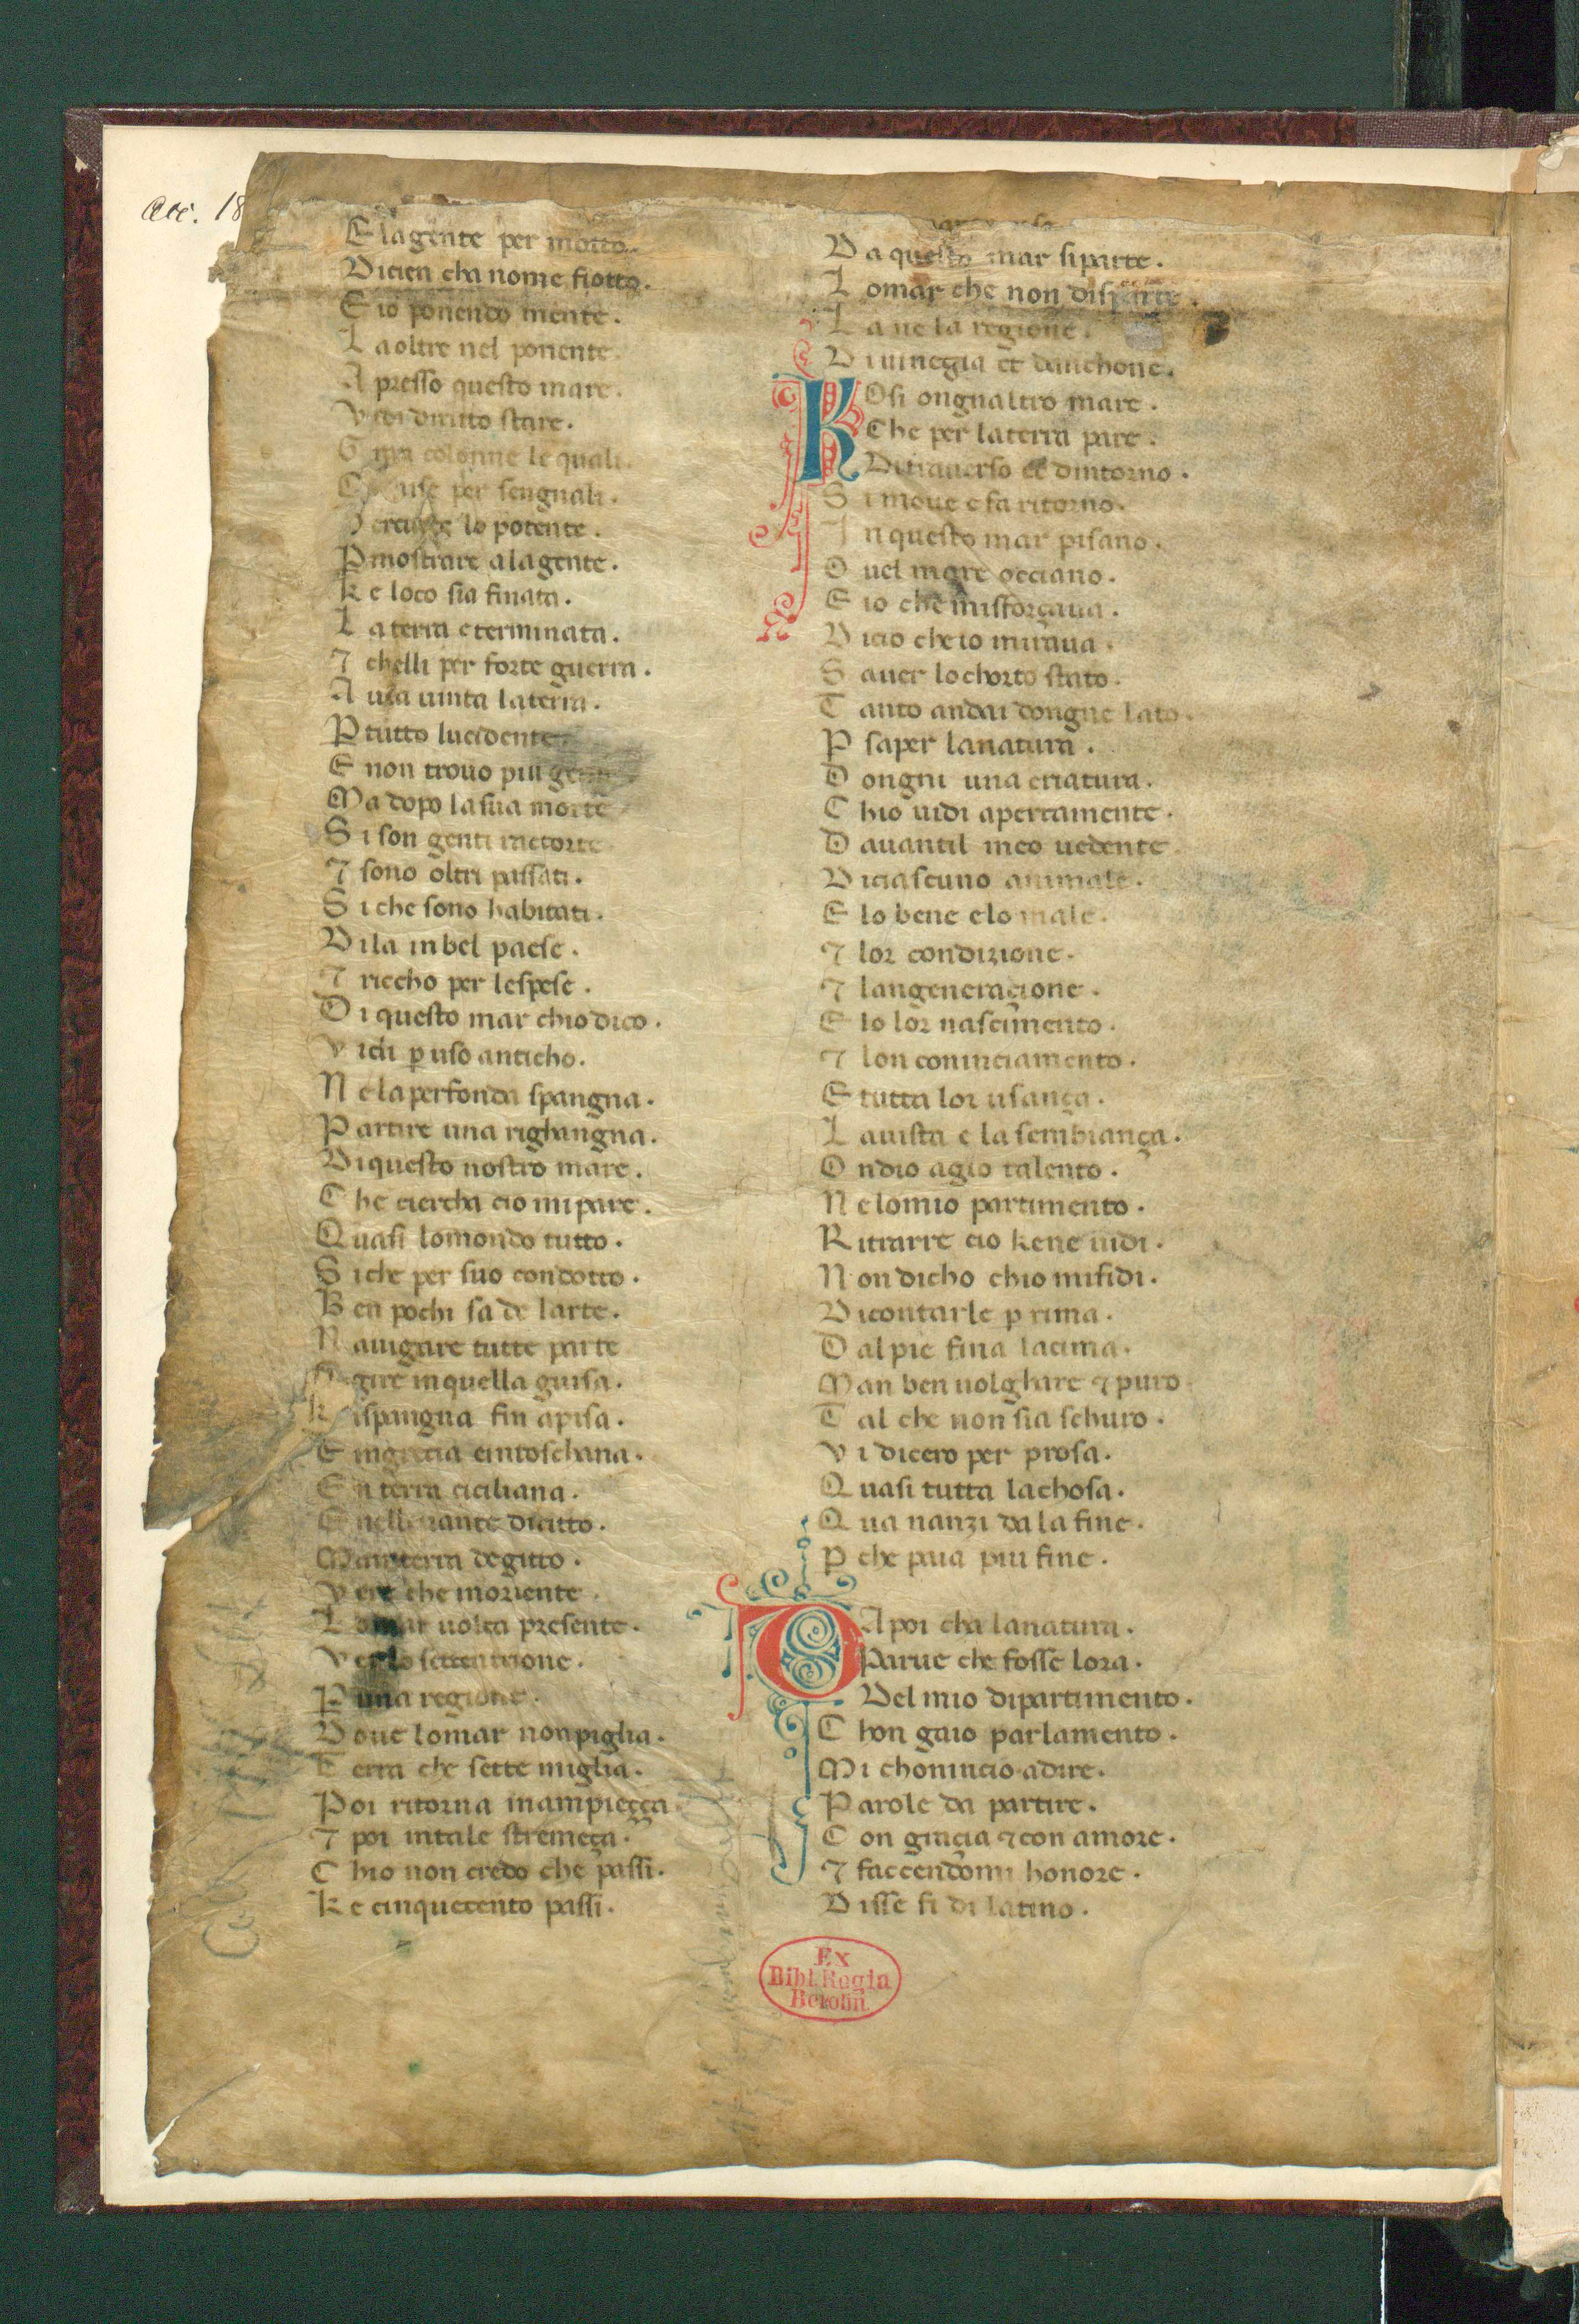 Acc. 18
E lagente per motto.
Dicien cha nome fiotto.
E io ponendo mente.
L aoltre nel ponente.
A presso questo mare.
V diritto stare.
G colonne le quali.
per sengnali.
lo potente.
P mostrare alagente.
k e loco sia finata.
L a terra e terminata.
⁊ chelli per forte guerra.
A uea uinta laterra.
P tutto lucidente.
E non trouo piu
Ma dopo la sua morte
S i son genti racorte
⁊ sono oltra passati.
S i che sono habitati.
D i la in bel paese.
⁊ riccho per lespese.
D i questo mar chio dico.
V idi p uso anticho.
N e la perfonda spangna.
P artire una righangna.
D i questo nostro mare.
C he ciercha cio mi pare.
Q uasi lo mondo tutto.
S i che per suo condotto.
B en pochi sa de larte.
N auigare tutte parte
gire in quella guisa.
k ispangna fin apisa.
E ingrecia e intoschana.
E n terra ciciliana.
E nelleuante diritto.
M a in terra degitto.
V ere che moriente
L o mar uolta presente.
V er lo settentrione.
P una regione.
D oue lomar non piglia.
T erra che sette miglia.
P oi ritorna in ampiecça
⁊ poi in tale stremeça.
C hio non credo che passi.
k e cinquecento passi.
D a questo mar si parte.
L omar che non disparte.
L a ue la regione.
D i uinegia et danchone.
K Osi ongnaltro mare.
C he per la terra pare.
D i trauerso et dintorno.
S i moue e fa ritorno.
I n questo mar pisano.
O uel mare occiano.
E io che misforçaua.
D i cio che io miraua.
S auer lo chorto stato.
T anto andai dongne lato.
P saper la natura.
D ongni una criatura.
C hio uidi apertamente.
D auantil meo uedente.
D i ciascuno animale.
E lo bene e lo male.
⁊ lor condizione.
⁊ langeneraçione.
E lo lor nascimento.
⁊ lon cominciamento.
E tutta lor usança.
L auista e la sembiança.
O ndio agio talento.
N e lo mio partimento.
R itrarre cio kene uidi.
N on dicho chio mi fidi.
D i contarle p rima.
D al pie fina la cima.
M an ben uolghare ⁊ puro.
T al che non sia schuro.
V i dicero per prosa.
Q uasi tutta la chosa.
Q ua nanzi da la fine.
P che paia piu fine.
D A poi cha la natura.
Parue che fosse lora.
Del mio dipartimento.
C hon gaio parlamento.
M i chomincio a dire.
P arole da partire.
C on graçia ⁊ con amore.
⁊ faccendomi honore.
D isse fi di latino.
Ex
Bibl. Regia
Berolin.